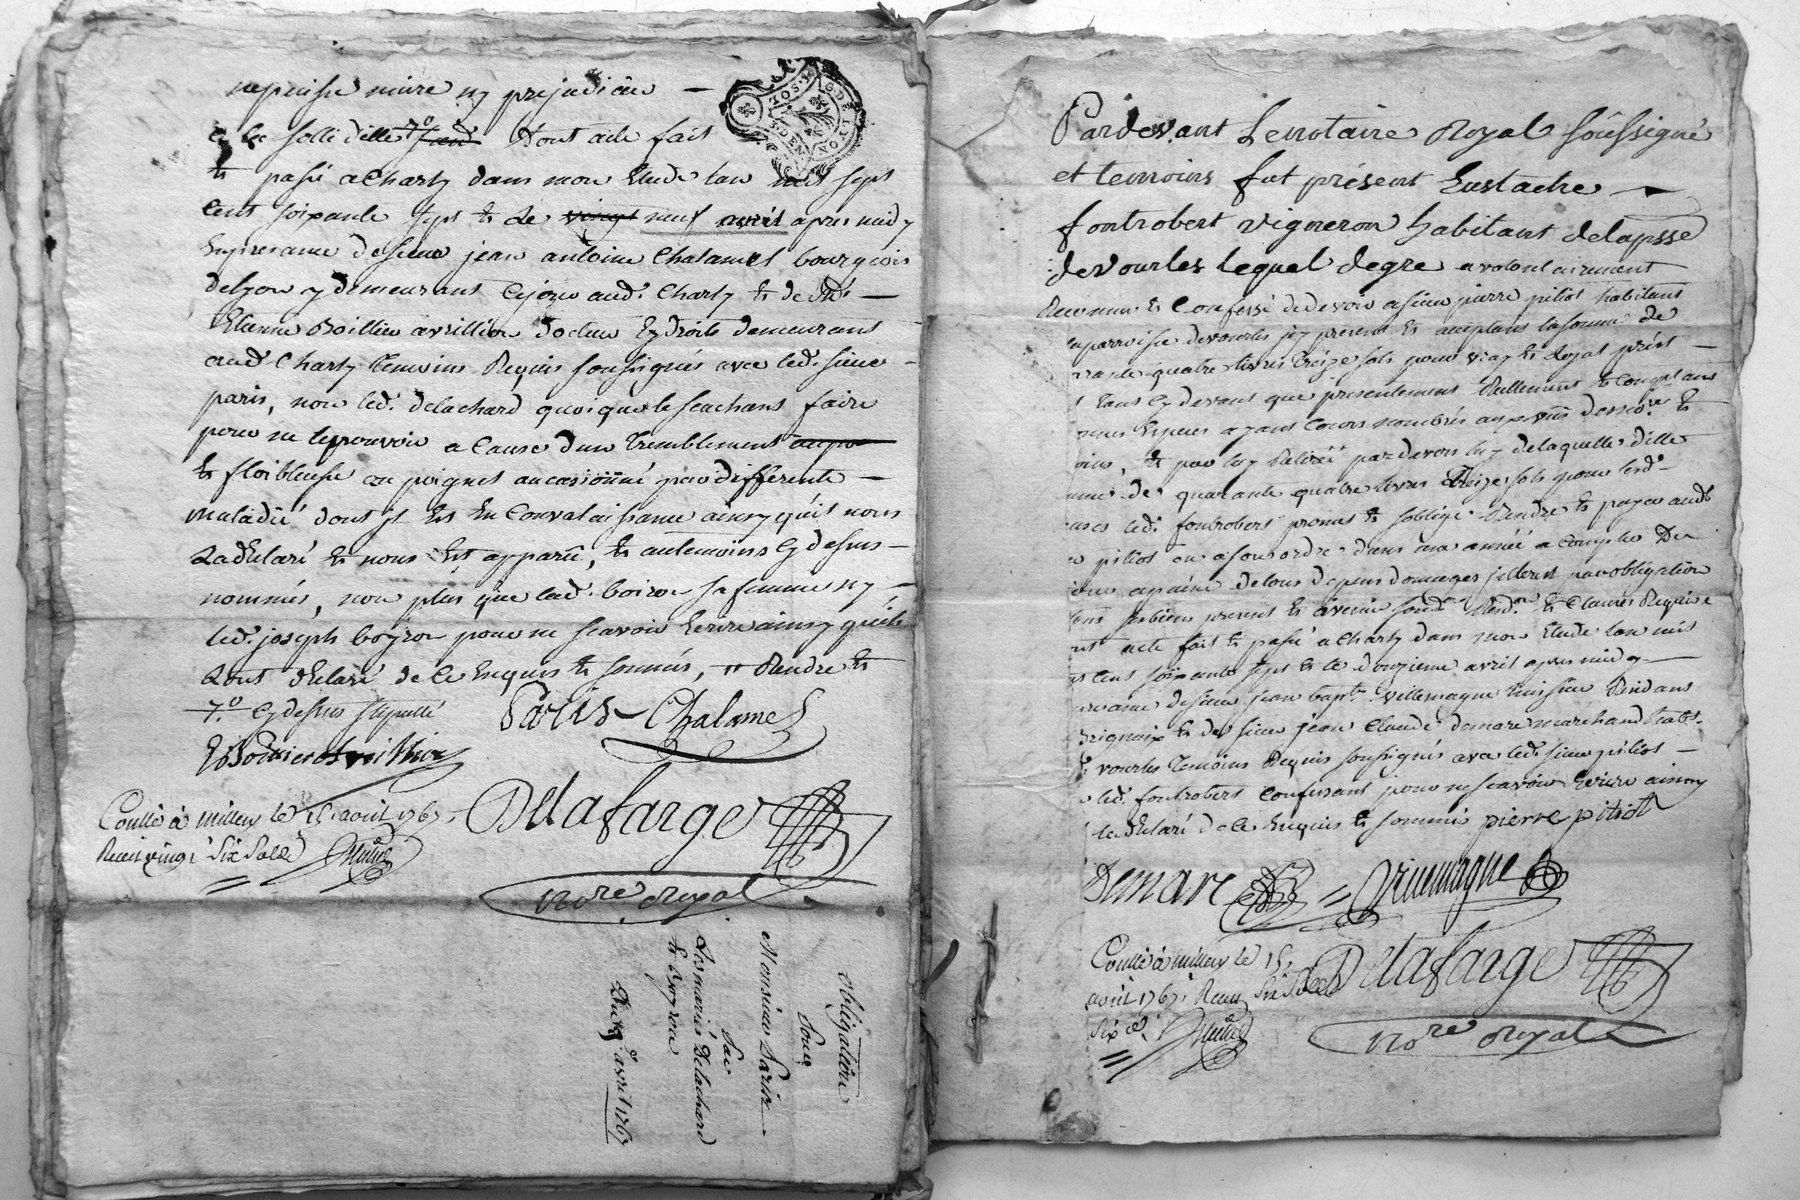 nepuisse nuire ny prejudicier —
a la solliditté 7.º dont acte fait
et passé a Charly dans mon Etude lan mil sept
cent soixante sept et le vingt neuf avril apres midy
En presance de sieur jean antoine Chalamel bourgeois
delyon y demeurant Cejour aud. Charly et de Mᵉ —
Etienne Boillieu avrillion docteur Ez droits demeurant
aud. Charly temoins Requis soussignés avec led. sieur
paris, non led. delachard quoique le scachant faire
pour ne le pouvoir a Cause dun tremblement
et floiblesse au poignet aucasionné par differente —
maladie dont jl Est En Convalaissance ainsy quil nous
La declaré et nous Est apparu, et aux temoins Cy dessus —
nommés, non plus que lad. boiron sa femme ny —
led. joseph boyron pour ne scavoir Ecrire ainsy quils
Lont declaré de ce Enquis et sommés, " Rendre et
7.º Cy dessus stipullé
Paris Chalamel
Controllé à millery le 15. avril 1767.
Receu vingt six sols
Delafarge
No.re Royal
obligation
Pour
Monsieur Paris
Sur
Les mariés Delachard
et boyron
Du 9.º avril 1767
Pardevant Lenotaire Royal soussigné
et temoins fut présent Eustache —
fontrobert vigneron habitant delapsse
devourles lequel degre avolontairement
Reconnu et Confessé de devoir a sieur pierre pitiot habitant
laparroisse devourles jcy present et acceptant lasomme de
quarante quatre livres treize sols pour vray et loyal prest —
tant Cy devant que presentement Reellement et Comptant
En Especes ayant Cours nombrés aux vûe desd. no.re et
temoins, et par luy Retirée pardevers luy delaquelle ditte
somme de quarante quatre livres treize sols pour lesd.
Causes led. fontrobert promet et soblige Rendre et payer aud.
sieur pitiot ou ason ordre dans une année a Compter de
ce jour apeine de tous depens domages jnterets par obligation
de biens present et avenir et Clauses Requise
dont acte fait et passé a Charly dans mon Etude lan mil
sept cent soixante sept et le douzieme avril apres midy —
En presance de sieur jean bapt.te villemagne huissier Residant
a Brignaix et de sieur jean Claude demare marchand habt.
de vourles temoins Requis soussignés avec led. sieur pitiot —
non led. fontrobert Confessant pour ne scavoir Ecrire ainsy
quil le declaré de ce Enquis et sommé pierre pitiot
Demare Villemagne
Controllé à millery le 15.
avril 1767. Receu six sols
six d.
Delafarge
No.re Royal